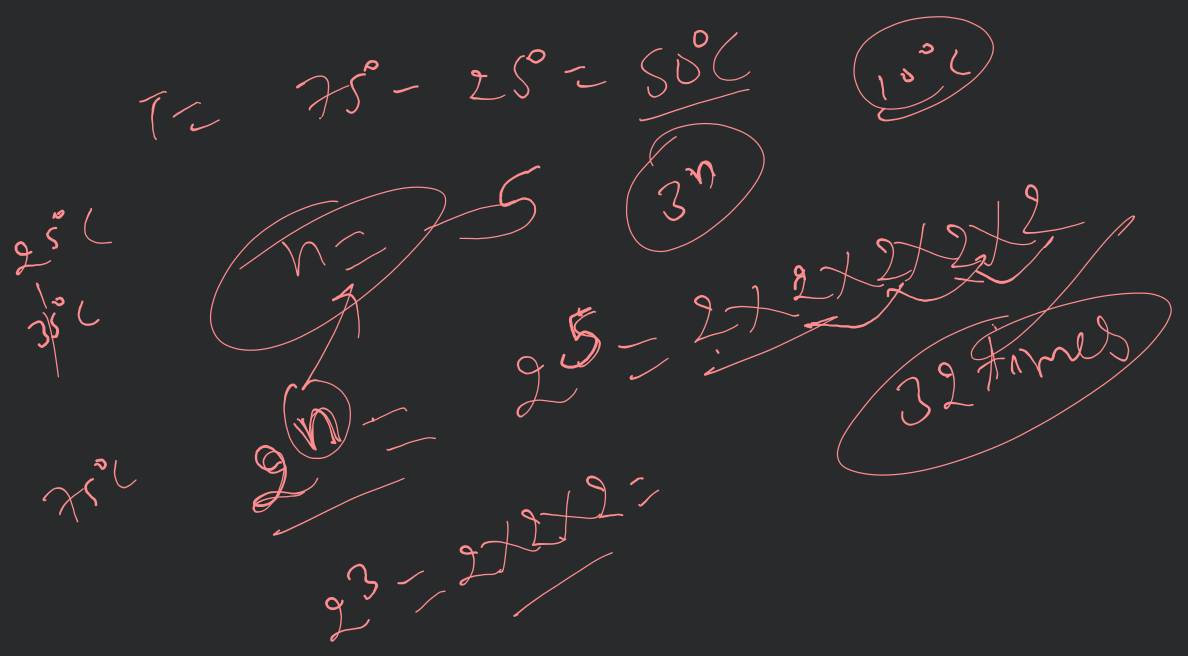 T = 75° - 25° = 50°C
10°C
3ⁿ
25°C
35°C
n = 5
2⁵ = 2×2×2×2×2
32 times
2ⁿ =
75°C
2³ = 2×2×2 =